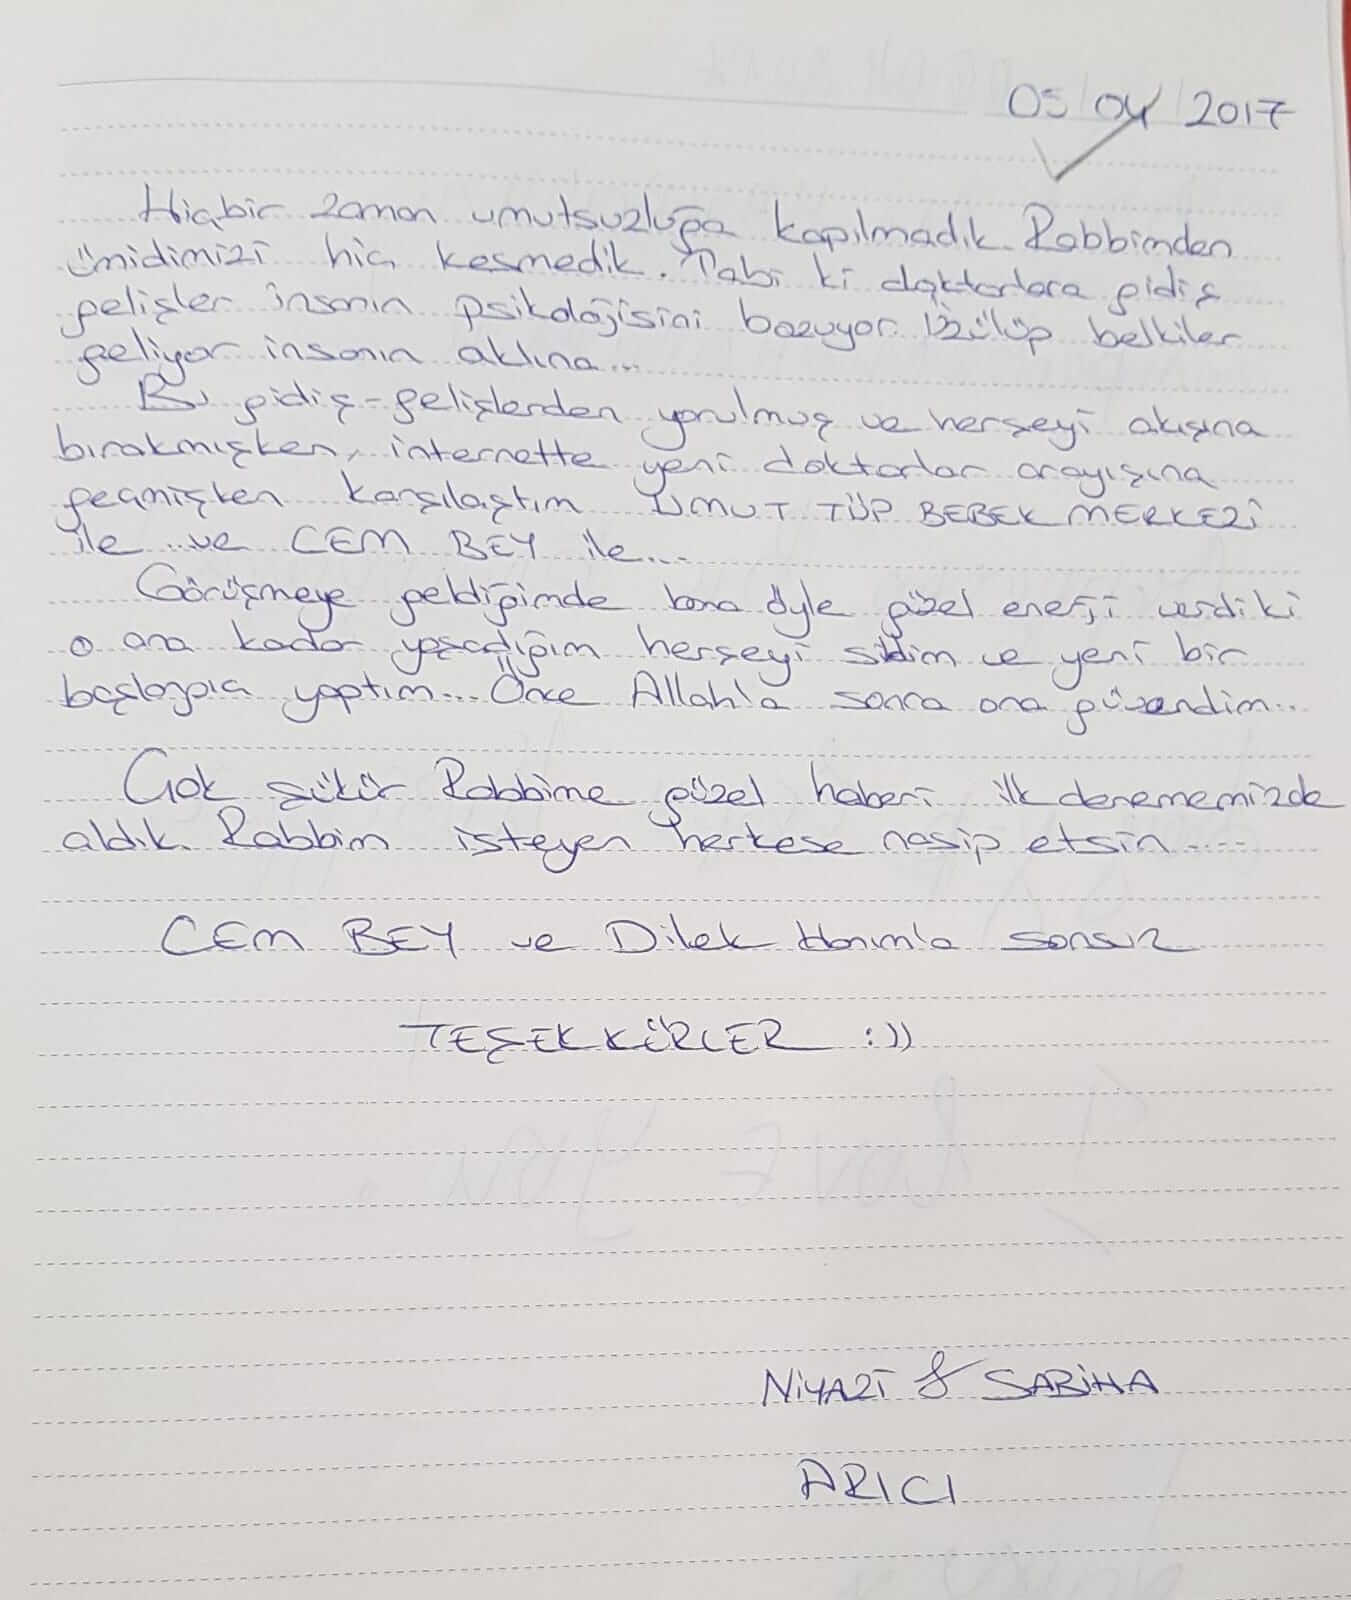 05/04/2017
Hiçbir zaman umutsuzluğa kapılmadık. Rabbimden
ümidimizi hiç kesmedik. Tabi ki doktorlara gidiş
gelişler insanın psikolojisini bozuyor. Üzülüp belkiler
geliyor insanın aklına...
Bu gidiş-gelişlerden yorulmuş ve herşeyi akışına
bırakmışken, internette yeni doktorlar arayışına
geçmişken karşılaştım UMUT TÜP BEBEK MERKEZİ
ile ve CEM BEY ile....
Görüşmeye geldiğimde bana öyle güzel enerji verdiki
o ana kadar yaşadığım herşeyi sildim ve yeni bir
başlangıç yaptım... Önce Allah'a sonra ona güvendim...
Çok şükür Rabbime güzel haberi ilk denememizde
aldık. Rabbim isteyen herkese nasip etsin.....
CEM BEY ve Dilek Hanım'a sonsuz
TEŞEKKÜRLER :))
NİYAZİ & SABİHA
ARICI